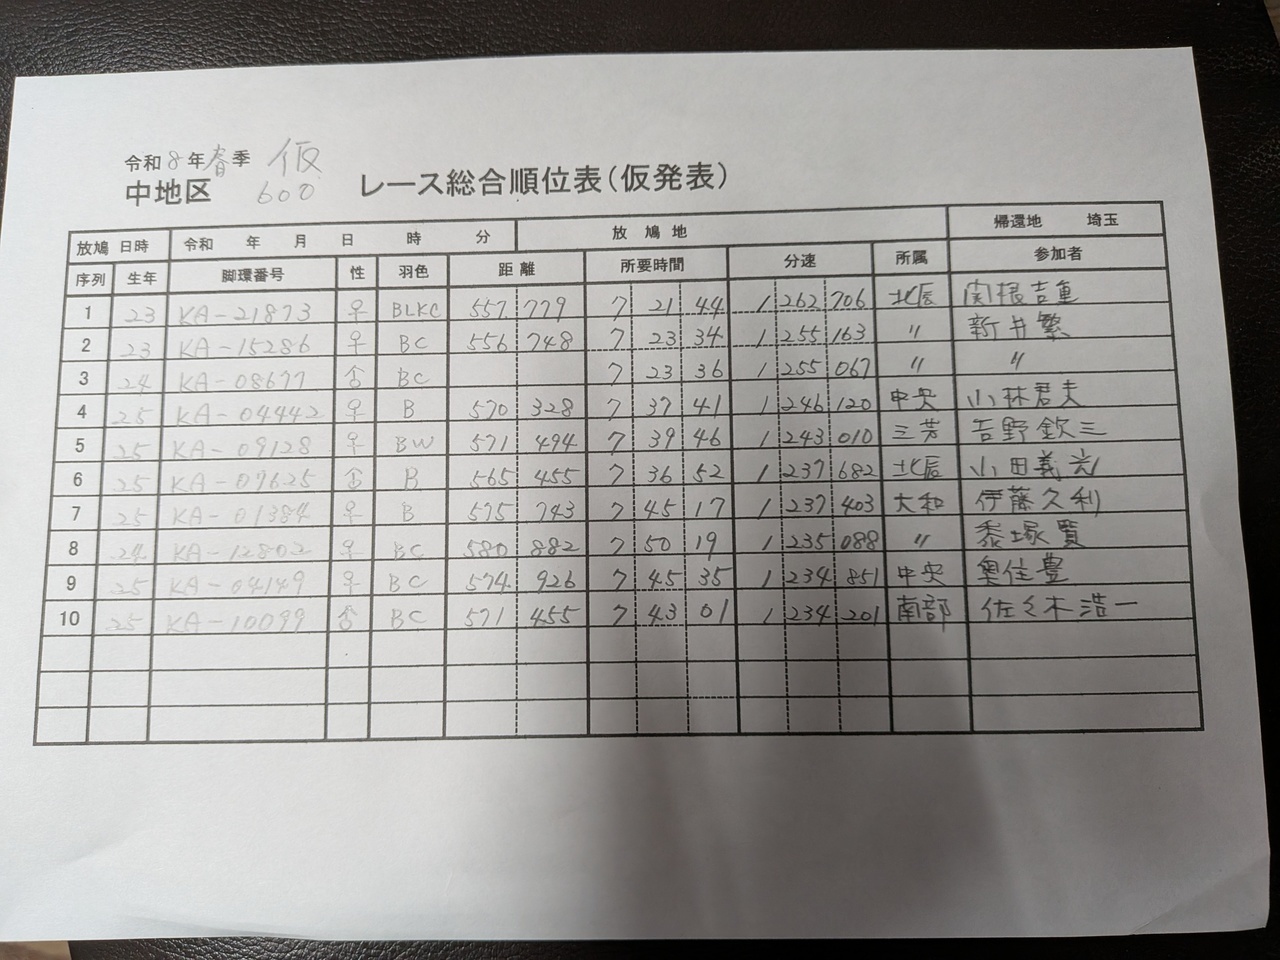 令和 8 年 春 季 仮
中地区 600 レース総合順位表(仮発表)
放鳩 日時 令和 年 月 日 時 分 放 鳩 地 帰還地 埼玉
序列 生年 脚環番号 性 羽色 距 離 所要時間 分速 所属 参加者
1 23 KA-21873 ♀ BLKC 557 779 7 21 44 1 262 706 北辰 関根吉重
2 23 KA-15286 ♀ BC 556 748 7 23 34 1 255 163 〃 新井繁
3 24 KA-08677 ♂ BC 7 23 36 1 255 067 〃 〃
4 25 KA-04442 ♀ B 570 328 7 37 41 1 246 120 中央 小林君夫
5 25 KA-09128 ♀ BW 571 494 7 39 46 1 243 010 三芳 吉野欽三
6 25 KA-07625 ♂ B 565 455 7 36 52 1 237 682 北辰 小田義光
7 25 KA-01384 ♀ B 575 743 7 45 17 1 237 403 大和 伊藤久利
8 24 KA-12802 ♀ BC 580 882 7 50 19 1 235 088 〃 黍塚賢
9 25 KA-04149 ♀ BC 574 926 7 45 35 1 234 851 中央 奥住豊
10 25 KA-10099 ♂ BC 571 455 7 43 01 1 234 201 南部 佐々木浩一